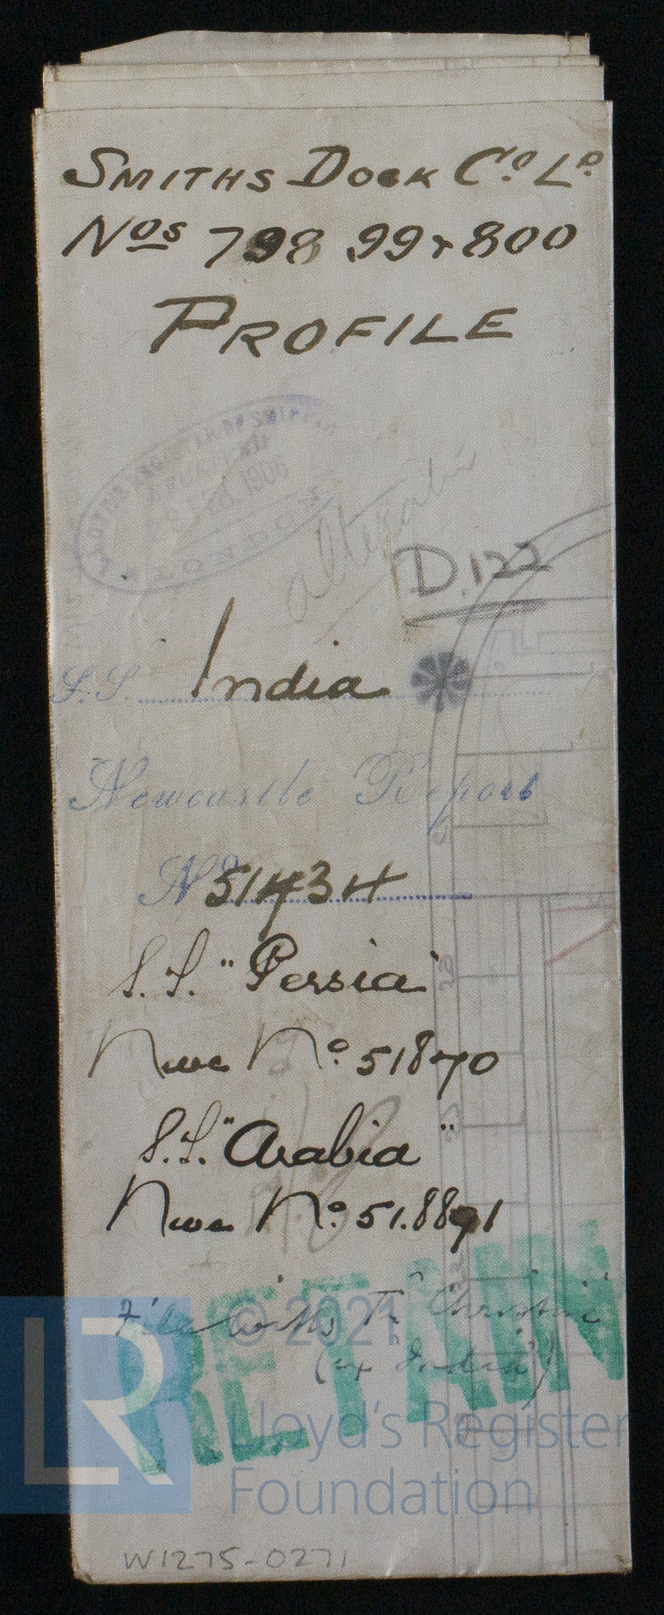 SMITHS DOCK Cº Lᴰ
Nos 798 99 & 800
PROFILE
LLOYD'S REGISTER OF SHIPPING
FEB. 1906
LONDON
D.122
S.S. India
Newcastle Report
Nº 51434
S.S. "Persia"
Nwc Nº 51870
S.S. "Arabia"
Nwc Nº 51.8891
File with
(ex "India")
RETAIN
© 2021
LR
Lloyd's Register
Foundation
W1275-0271